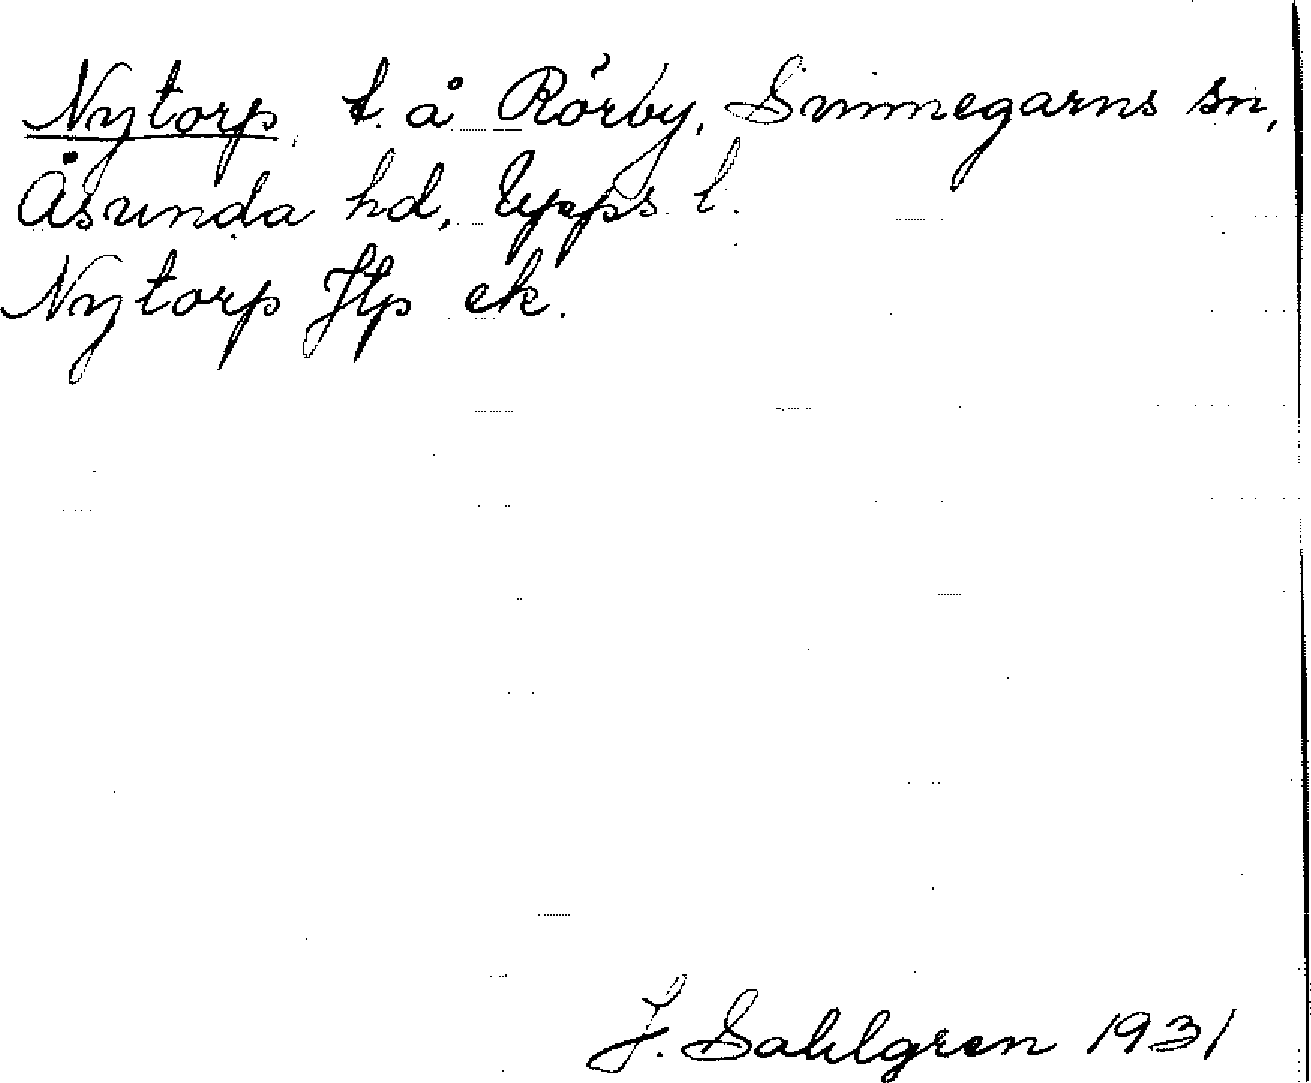 Nytorp, t. å Rörby, Svinnegarns sn,
Åsunda hd, Upps. l.
Nytorp Jtp ek.
J. Sahlgren 1931